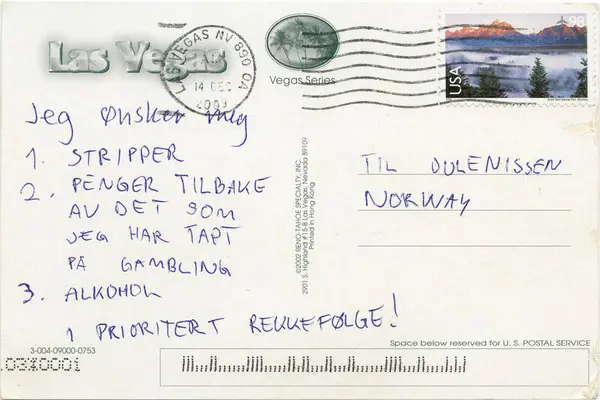 Las Vegas
LAS VEGAS NV 890 0A
14 DEC
2009
Vegas Series
98
USA
Jeg Ønsker meg
1. STRIPPER
2. PENGER TILBAKE
AV DET SOM
JEG HAR TAPT
PÅ GAMBLING
3. ALKOHOL
I PRIORITERT REKKEFØLGE!
©2002 RENO-TAHOE SPECIALTY, INC.
2901 S. Highland #15-B Las Vegas, Nevada 89109
Printed in Hong Kong
TIL JULENISSEN
NORWAY
Space below reserved for U.S. POSTAL SERVICE
3-004-09000-0753